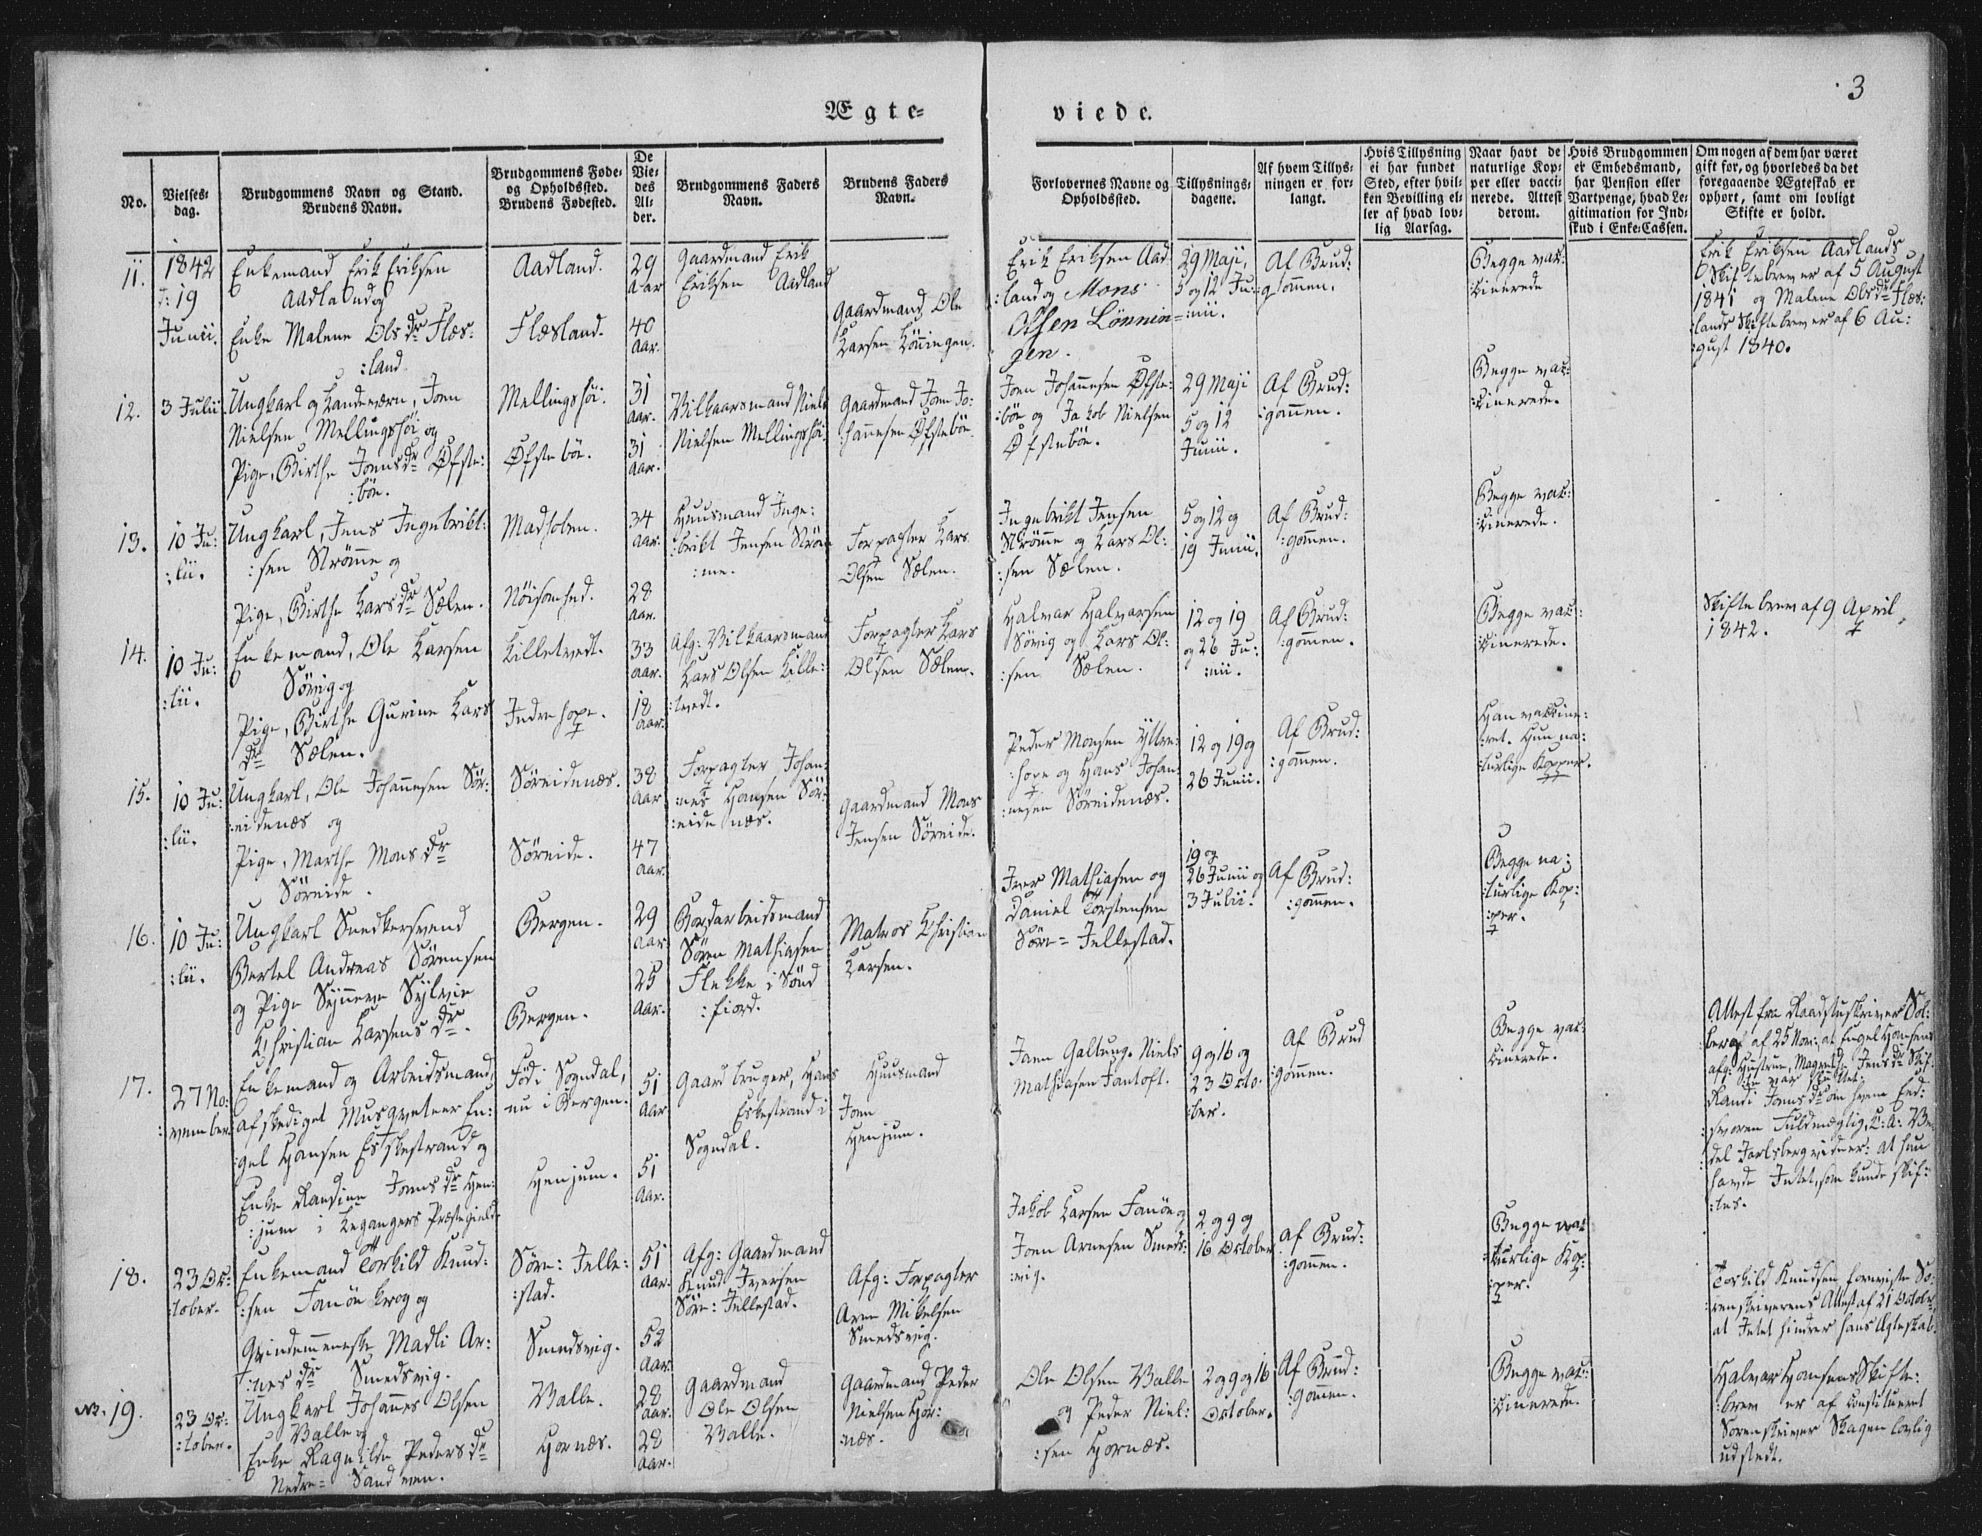 3
Ægte-
viede.
No.
Vielses-
dag.
Brudgommens Navn og Stand.
Brudens Navn.
Brudgommens Føde-
og Opholdssted.
Brudens Fødested.
De
Vie-
des
Al-
der.
Brudgommens Faders
Navn.
Brudens Faders
Navn.
Forlovernes Navne og
Opholdssted.
Tillysnings-
dagene.
Af hvem Tillys-
ningen er for-
langt.
Hvis Tillysning
ei har fundet
Sted, efter hvil-
ken Bevilling el-
ler af hvad lov-
lig Aarsag.
Naar havt de
naturlige Kop-
per eller vacci-
nerede. Attest
derom.
Hvis Brudgommen
er Embedsmand,
har Pension eller
Vartpenge, hvad Le-
gitimation for Ind-
skud i Enke-Cassen.
Om nogen af dem har været
gift før, og hvorledes da det
foregaaende Ægteskab er
ophørt, samt om lovligt
Skifte er holdt.
11.
1842
19
Junii.
Enkemand Erik Eriksen
Aadland og
Enke Malene Olsdr Flæs-
:land.
Aadland.
Flæsland.
29
Aar
40
Aar.
Gaardmand Erik
Eriksen Aadland
Gaardmand Ole
Larsen Löningen.
Erik Eriksen Aad-
:land og Mons
Olsen Lönnin-
gen.
29 Maji,
5 og 12 Ju-
:nii.
Af Brud-
gomen.
Begge vac-
:cinerede
Erik Eriksen Aadlands
Skiftebrev er af 5 August
1841 og Malene Olsdr Flæs-
:lands Skiftebrev er af 6 Au-
:gust 1840.
12.
3 Julii
Ungkarl og Landeværn, Joen
Nielsen Mellingshöi og
Pige, Birthe Jonsdr Øfste-
:bön.
Mellingshöi.
Øfstebön.
31
Aar.
31
Aar.
Vilkaarsmand Niels
Nielsen Mellingshöi.
Gaardmand Joen Jo-
:hannesen Øfstebön.
Joen Johannesen Øfste-
:bön og Jakob Nielsen
Øfstebön.
29 Maji
5 og 12
Junii.
Af Brud-
:gommen.
Begge vac-
:cinerede.
13.
10 Ju-
:lii.
Ungkarl, Jens Ingebrikt-
:sen Strömme og
Pige, Birthe Larsdr Sælen.
Madsolen.
Nöisomhed.
34
Aar.
28
Aar.
Huusmand Inge-
:brikt Jensen Ström-
:me.
Forpagter Lars
Olsen Sælen.
Ingebrikt Jensen
Strömme og Lars Ol-
:sen Sælen.
5 og 12 og
19 Junii.
Af Brud-
:gommen.
Begge vac-
:cinerede.
14.
10 Ju-
:lii.
Enkemand, Ole Larsen
Sörvig og
Pige, Birthe Gurine Lars
dr Sælen.
Lilletvedt.
Indrehope.
33
Aar.
18
Aar.
Afg: Vilkaarsmand
Lars Olsen Lille-
:tvedt.
Forpagter Lars
Olsen Sælen.
Halvor Halvorsen
Sörvig og Lars Ol-
:sen Sælen.
12 og 19
og 26 Ju-
:nii.
Af Brud-
:gommen.
Begge vac-
:cinerede.
Skiftebrev af 9 April,
1842.
15.
10 Ju-
:lii.
Ungkarl, Ole Johannesen Sör-
:eidenæs og
Pige, Marthe Monsdr
Söreide.
Söreidenæs.
Söreide.
38
Aar
47
Aar.
Forpagter Johan-
:nes Hansen Sör-
:eidenæs.
Gaardmand Mons
Jensen Söreide.
Peder Monsen Yttre-
:hope og Hans Johan-
:nesen Söreidenæs.
12 og 19 og
26 Junii.
Af Brud-
:gommen.
Han vaccine-
:ret. Hun na-
:turlige Kopper.
16.
10 Ju-
:lii.
Ungkarl Snedkersvend
Bertel Andreas Sörensen
og Pige Synneve Sylvie
Christian Larsens dr.
Bergen.
Bergen.
29
Aar
25
Aar.
Bordarbeidsmand
Sören Mathiasen
Flekke i Sönd
:fiord.
Matros Christian
Larsen.
Iver Mathiasen og
Daniel Torstensen
Söre-Jellestad.
19 og
26 Junii og
3 Julii.
Af Brud-
:gommen.
Begge na-
:turlige Kop-
:per.
17.
27 No-
:vember
Enkemand og Arbeidsmand,
afskediget Musqveteer En-
:gel Hansen Eskestrand og
Enke Randine Jonsdr Hen-
:jum i Legangers Præstegield.
Föd i Sogndal,
nu i Bergen.
Henjum.
51
Aar
51
Aar.
Gaardbruger, Hans
Eskestrand i
Sogndal.
Huusmand
Joen
Henjum.
Joen Galtung. Niels
Mathiasen Fantoft.
9 og 16 og
23 Octo-
:ber.
Af Brud
:gommen.
Begge vac-
:cinerede.
Attest fra Raadstuskriver Sol-
berg af 25 Nov: at Engel Hansens
afg: Hustrue, Magrethe Jensdr Skif-
te var sluttet.
Randi Jonsdr om hvem Eed-
:svoren Fuldmægtig, L: A: We-
del Jarlsberg vidner: at hun
havde Intet, som kunde skif-
:tes.
18.
23 Oc-
:tober.
Enkemand Torkild Knud-
:sen Fanöekrog og
Qvindemenneske Madli Ar-
:nes dr Smedsvig.
Söre-Jelle-
:stad.
Smedsvig.
51
Aar.
52
Aar.
Afg: Gaardmand
Knud Iversen
Söre-Jellestad.
Afg: Forpagter
Arne Mikelsen
Smedsvig.
Jakob Larsen Fanöe og
Joen Arnesen Smeds-
:vig.
2 og 9 og
16 October
Af Brud-
:gommen.
Begge na-
:turlige Kop-
:per.
Torkild Knudsen foreviste So-
:renskriverens Attest af 21 October,
at Intet hindrer hans Ægteskab.
No. 19.
23 Oc-
:tober.
Ungkarl Johannes Olsen
Valle og
Enke Ragnilde Pedersdr
Nedre-Sandven.
Valle.
Hornæs.
28
Aar.
28
Aar.
Gaardmand
Ole Olsen
Valle.
Gaardmand Peder
Nielsen Hor-
:næs.
Ole Olsen Valle
og Peder Niel-
:sen Hornæs.
2 og 9 og 16
October.
Af Brud-
:gommen.
Begge vac-
:cinerede.
Halvor Hansens Skifte-
:brev er af constitueret
Sorenskriver Skagen lovlig
udstedt.